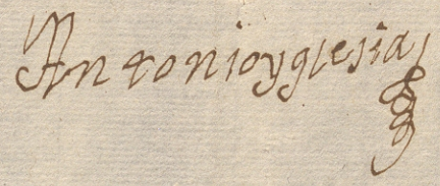 Antonio yglesias